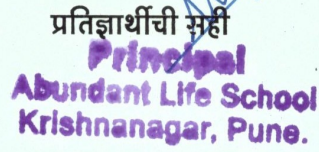 प्रतिज्ञार्थीची सही
Principal
Abundant Life School
Krishnanagar, Pune.